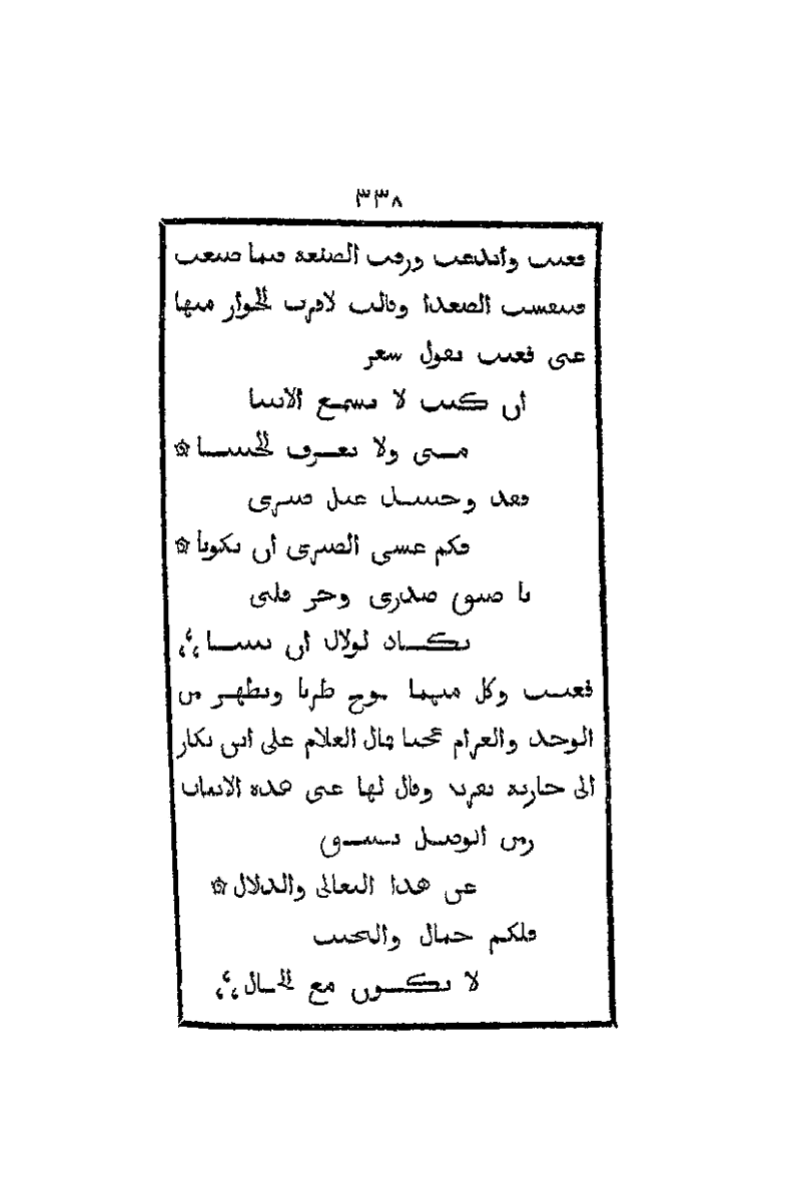 ٣٣٨
فغنت وأبدعت ورقت الصنعة فيما صنعت
فتنفست الصعدا وقالت لاقرب الجوار منها
غنى فغنت تقول شعر
ان كنت لا تسمع الانينا
منى ولا تعرف الحنينا ۞
فقد وحبيك عيل صبرى
فكم عسى الصبرى ان يكونا ۞
يا ضيق صدرى وحر قلبى
يكاد لولاك ان يبينا
فغنت وكل منهما يموج طربا ويظهر من
الوجد والغرام عجبا فقال الغلام على ابن بكار
الى جارية بقربه وقال لها غنى هذه الابيات
زمن الوصل يضيق
عن هذا التغالى والدلال ۞
فلكم جمال والتجنب
لا يكون مع الجمال